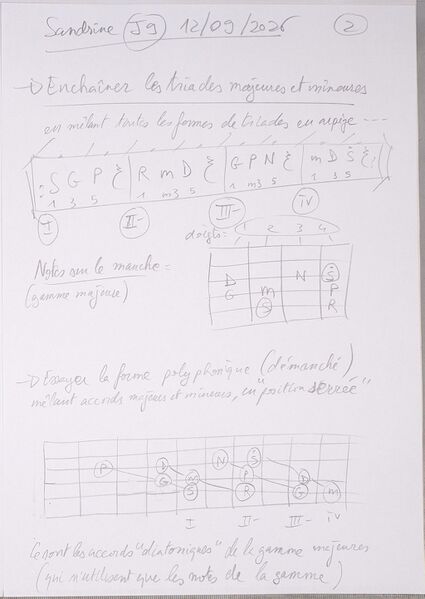 Sandrine J9 12/09/2026 2
Enchaîner les triades majeures et mineures
en mêlant toutes les formes de triades en arpège ---
S G P | R m D | G P N | m D S
1 3 5 1 m3 5 1 m3 5 1 3 5
I II- III- IV
doigts: 1 2 3 4
Notes sur le manche =
(gamme majeure)
D N S
G m P
S R
Essayer la forme polyphonique (démanché)
mêlant accords majeurs et mineurs, en "position serrée"
P D N S
G m P D
S R G m
I II- III- IV
Ce sont les accords "diatoniques" de la gamme majeure
(qui n'utilisent que les notes de la gamme)